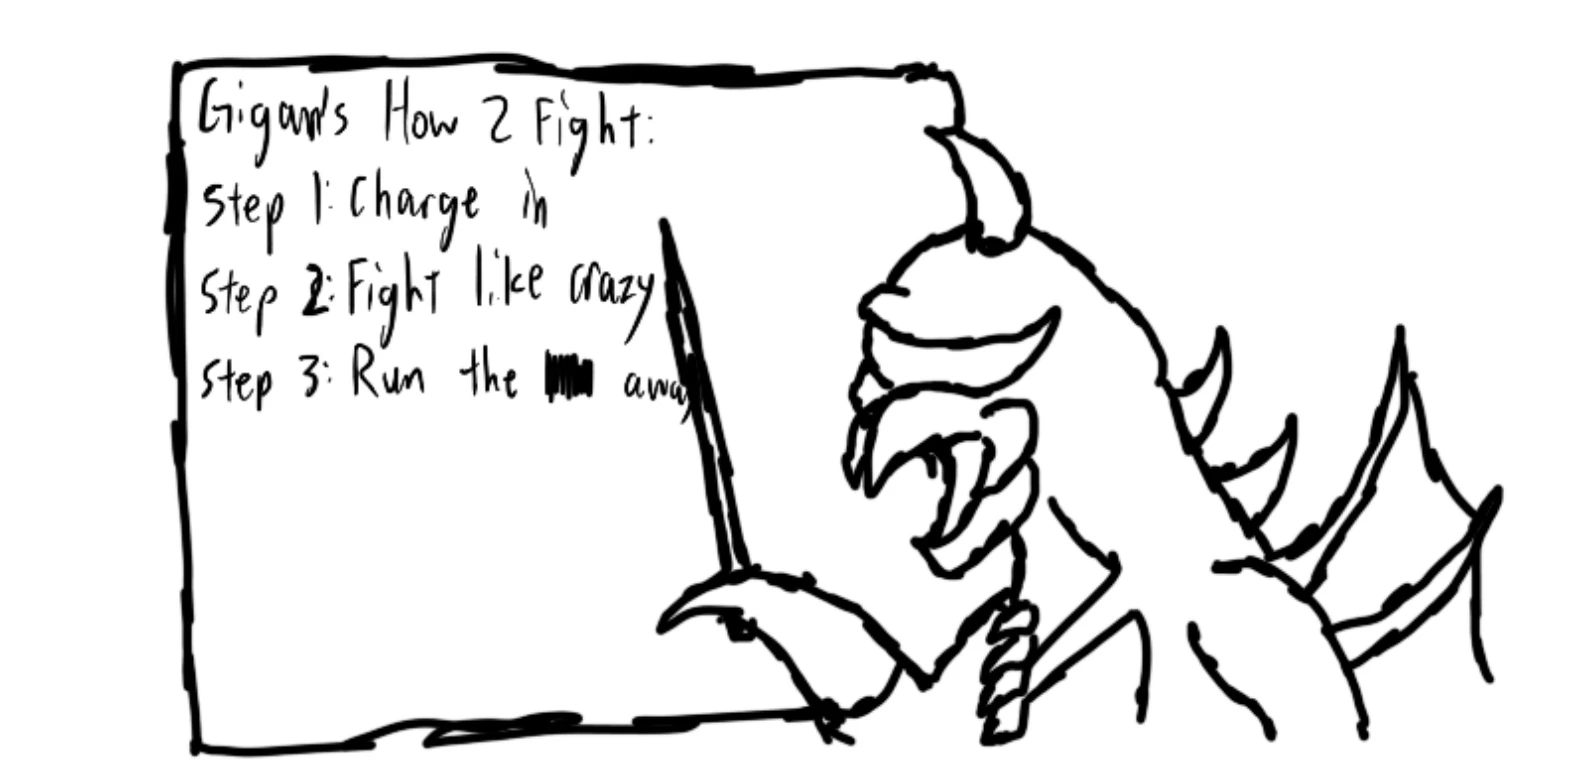 Gigan's How 2 Fight:
Step 1: Charge in
Step 2: Fight like crazy
Step 3: Run the away